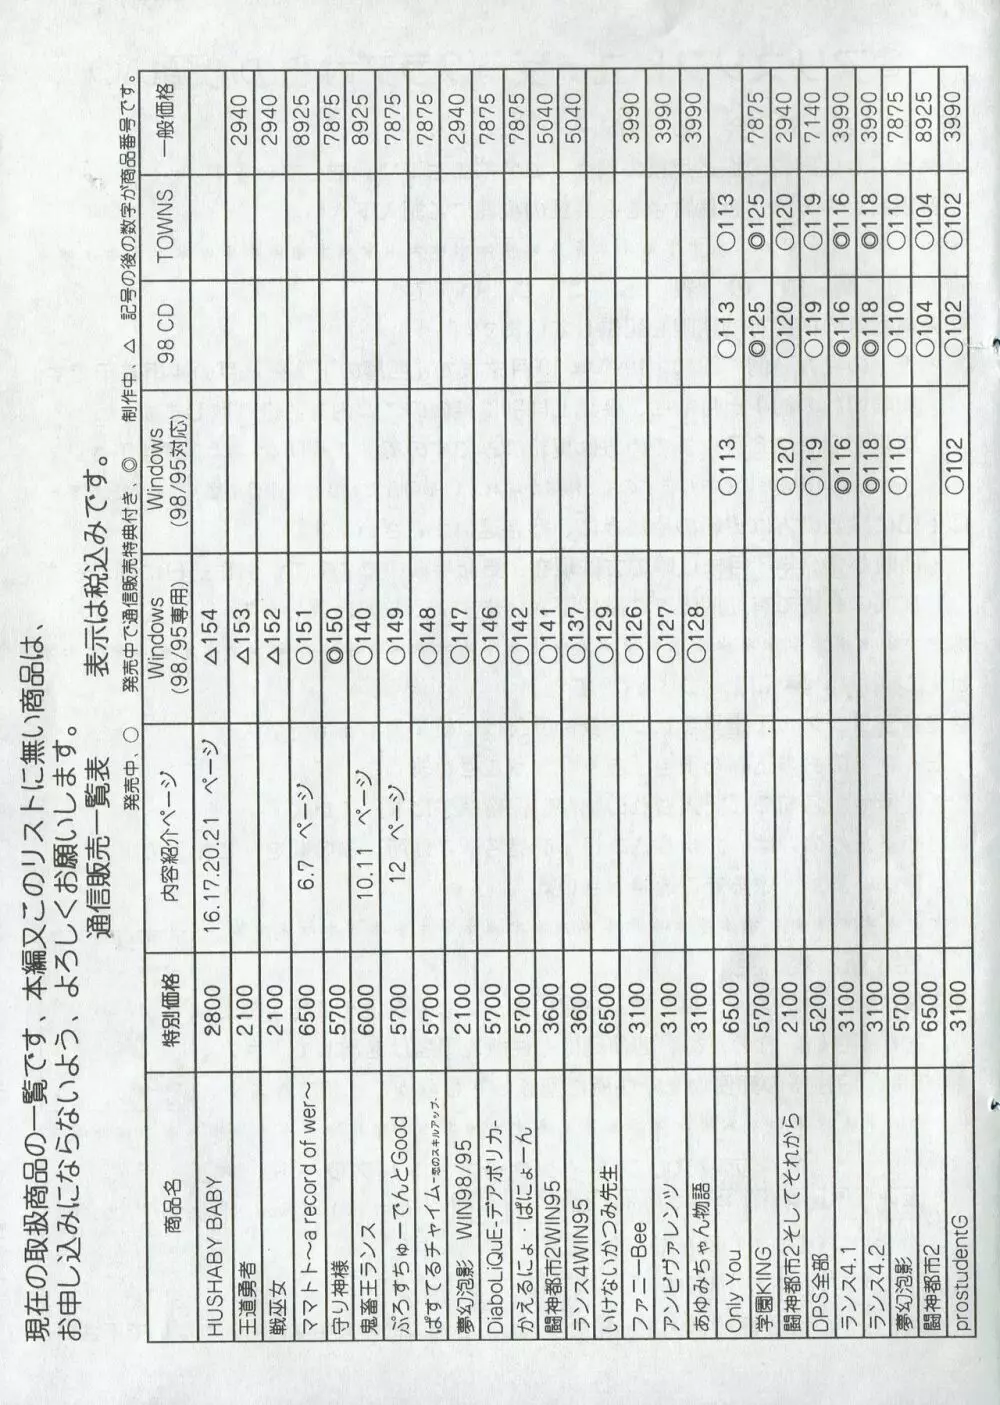 現在の取扱商品の一覧です、本編又このリストに無い商品は、
お申し込みにならないよう、よろしくお願いします。
通信販売一覧表　表示は税込みです。
発売中、○　発売中で通信販売特典付き、◎　制作中、△　記号の後の数字が商品番号です。
商品名 特別価格 内容紹介ページ Windows (98/95専用) Windows (98/95対応) 98 CD TOWNS 一般価格
HUSHABY BABY 2800 16.17.20.21 ページ △154
王道勇者 2100 △153 2940
戦巫女 2100 △152 2940
ママトト～a record of wer～ 6500 6.7 ページ ○151 8925
守り神様 5700 ◎150 7875
鬼畜王ランス 6000 10.11 ページ ○140 8925
ぷろすちゅーでんとGood 5700 12 ページ ○149 7875
ぱすてるチャイム-恋のスキルアップ- 5700 ○148 7875
夢幻泡影　WIN98/95 2100 ○147 2940
DiaboLiQuE-デアボリカ- 5700 ○146 7875
かえるにょ・ぱにょーん 5700 ○142 7875
闘神都市2WIN95 3600 ○141 5040
ランス4WIN95 3600 ○137 5040
いけないかつみ先生 6500 ○129
ファニーBee 3100 ○126 3990
アンビヴァレンツ 3100 ○127 3990
あゆみちゃん物語 3100 ○128 3990
Only You 6500 ○113 ○113 ○113
学園KING 5700 ◎125 ◎125 7875
闘神都市2そしてそれから 2100 ○120 ○120 ○120 2940
DPS全部 5200 ○119 ○119 ○119 7140
ランス4.1 3100 ◎116 ◎116 ◎116 3990
ランス4.2 3100 ◎118 ◎118 ◎118 3990
夢幻泡影 5700 ○110 ○110 ○110 7875
闘神都市2 6500 ○104 ○104 8925
prostudentG 3100 ○102 ○102 ○102 3990